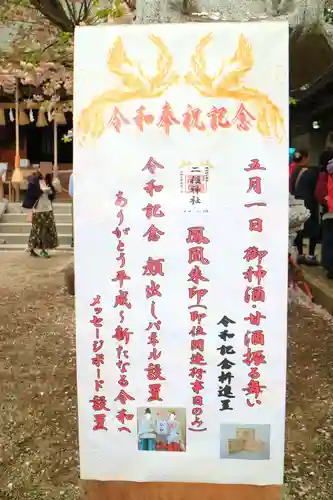 令和奉祝記念
五月一日 御神酒・甘酒振る舞い
令和記念枡進呈
二柱神社
鳳凰朱印(即位関連行事日のみ)
令和記念 顔出しパネル設置
ありがとう平成~新たなる令和へ
メッセージボード設置